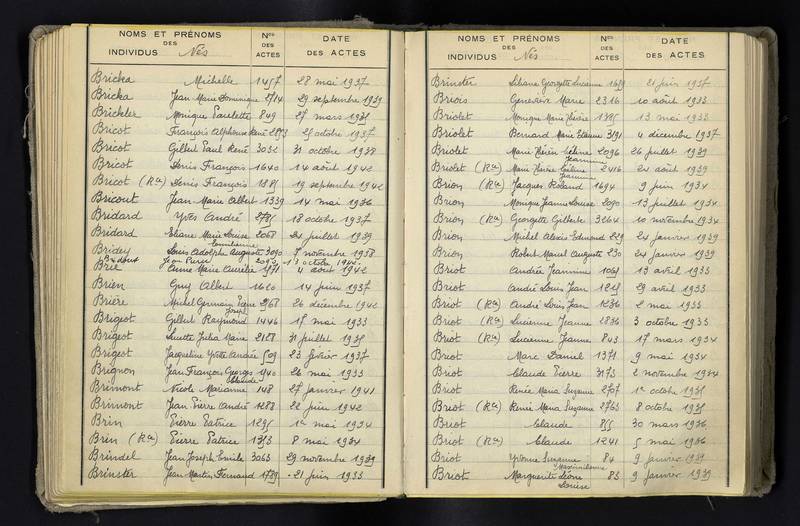 NOMS ET PRÉNOMS
DES
INDIVIDUS Nés
Nos
DES
ACTES
DATE
DES ACTES
Bricka Michelle 1457 28 mai 1937
Bricka Jean Marie Dominique 2714 29 septembre 1939
Brickler Monique Paulette 849 27 mars 1935
Bricot François Alphonse René 2873 25 octobre 1937
Bricot Gilbert Paul René 3032 31 octobre 1938
Bricot Denis François 1640 14 août 1942
Bricot (Ron) Denis François 1885 19 septembre 1942
Bricout Jean Marie Albert 1339 14 mai 1936
Bridard Yves André 2785 18 octobre 1937
Bridard Eliane Marie Louise 2068 24 juillet 1939
Bridey Louis Adolphe Auguste 3090 7 novembre 1938
Maximilienne
Jean Pierre 13 octobre
Brie Anne Marie Aurélie 1571 4 août 1942
Brien Guy Albert 1620 14 juin 1937
Brière Michel Germain 2968 26 décembre 1942
Joseph
Brigest Gilbert Raymond 1446 15 mai 1933
Brigest Lucette Julia Marie 2128 31 juillet 1935
Brigest Jacqueline Yvette Andrée 509 23 février 1937
Brignon Jean François Georges 1540 26 mai 1933
Claude
Brimont Nicole Marianne 148 27 janvier 1941
Brimont Jean Pierre André 1288 22 juin 1942
Brin Pierre Patrice 1295 1er mai 1934
Brin (Ron) Pierre Patrice 1353 8 mai 1934
Brindel Jean Joseph Emile 3063 29 novembre 1939
Brinster Jean Martin Fernand 1789 21 juin 1933
NOMS ET PRÉNOMS
DES
INDIVIDUS Nés
Nos
DES
ACTES
DATE
DES ACTES
Brinster Liliane Georgette Suzanne 1689 21 juin 1937
Briois Geneviève Marie 2316 10 août 1933
Briolet Monique Marie Thérèse 1395 13 mai 1933
Briolet Bernard Marie Etienne 3191 4 décembre 1937
Briolet Marie Thérèse Céline 2096 26 juillet 1939
Jeannine
Briolet (Ron) Marie Thérèse Céline 2416 24 août 1939
Jeannine
Brion (Ron) Jacques Roland 1694 9 juin 1934
Brion Monique Jeanne Louise 2090 13 juillet 1934
Brion (Ron) Georgette Gilberte 3264 10 novembre 1934
Brion Michel Alexis Edmond 229 24 janvier 1939
Brion Robert Marcel Auguste 230 24 janvier 1939
Briot Andrée Jeannine 1061 13 avril 1933
Briot André Louis Jean 1215 29 avril 1933
Briot (Ron) André Louis Jean 1236 2 mai 1933
Briot (Ron) Lucienne Jeanne 2836 3 octobre 1933
Briot (Ron) Lucienne Jeanne 843 17 mars 1934
Briot Marc Daniel 1371 9 mai 1934
Briot Claude Pierre 3173 2 novembre 1934
Briot Renée Maria Suzanne 2707 1er octobre 1935
Briot (Ron) Renée Maria Suzanne 2763 8 octobre 1935
Briot Claude 855 30 mars 1936
Briot (Ron) Claude 1241 5 mai 1936
Briot Yvonne Suzanne 84 9 janvier 1939
Maximilienne
Briot Marguerite Léone 83 9 janvier 1939
Louise